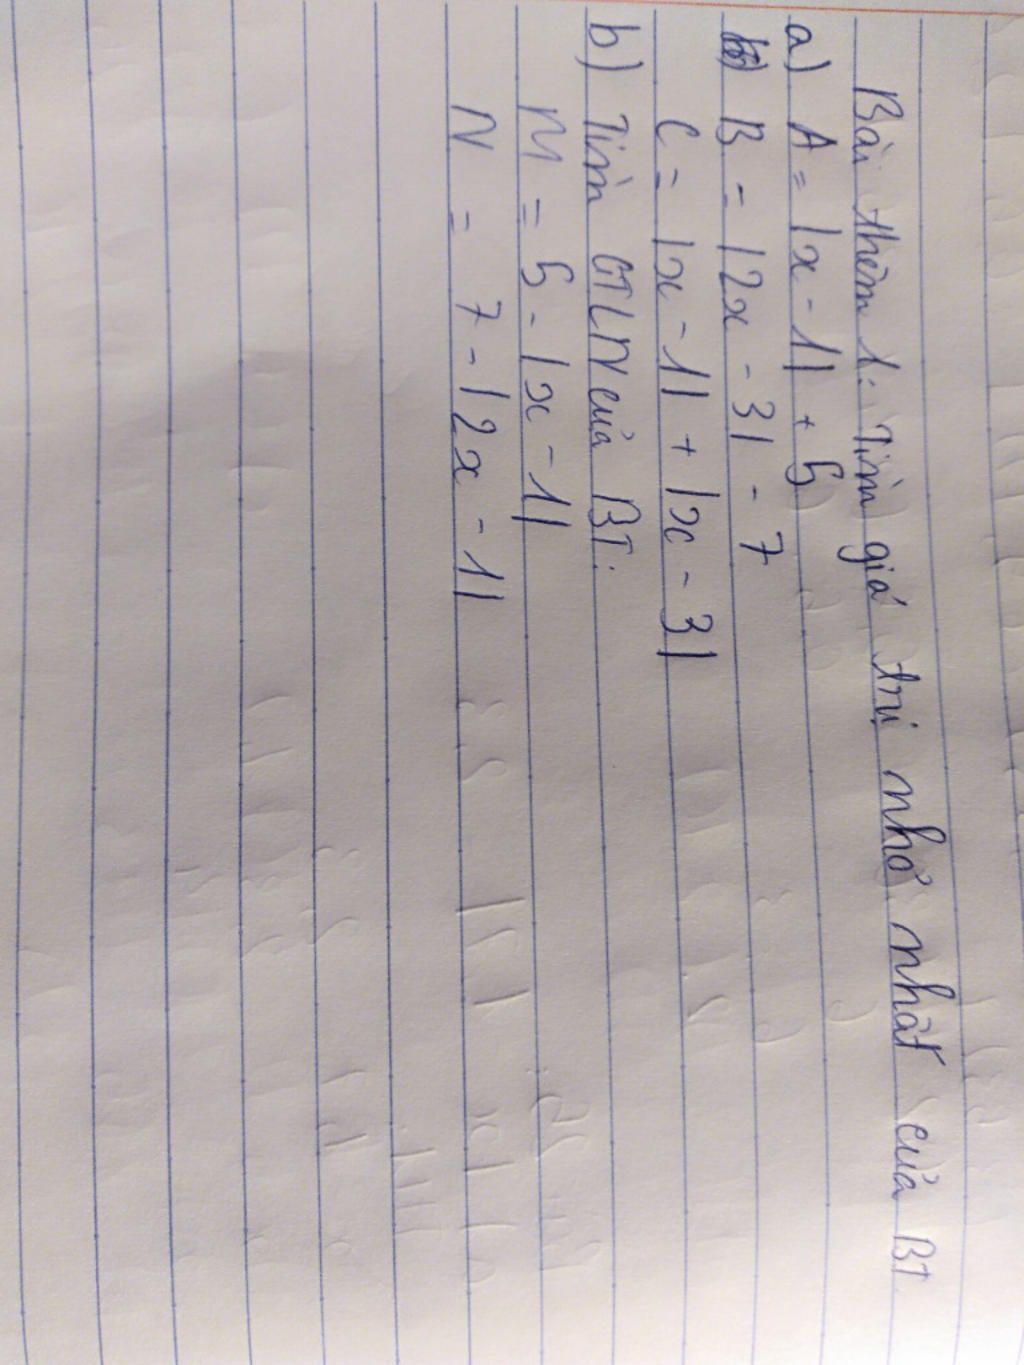 Bài thêm 1: Tìm giá trị nhỏ nhất của BT
a) A = |x - 1| + 5
B = |2x - 3| - 7
C = |x - 1| + |x - 3|
b) Tìm GTLN của BT:
M = 5 - |x - 1|
N = 7 - |2x - 1|